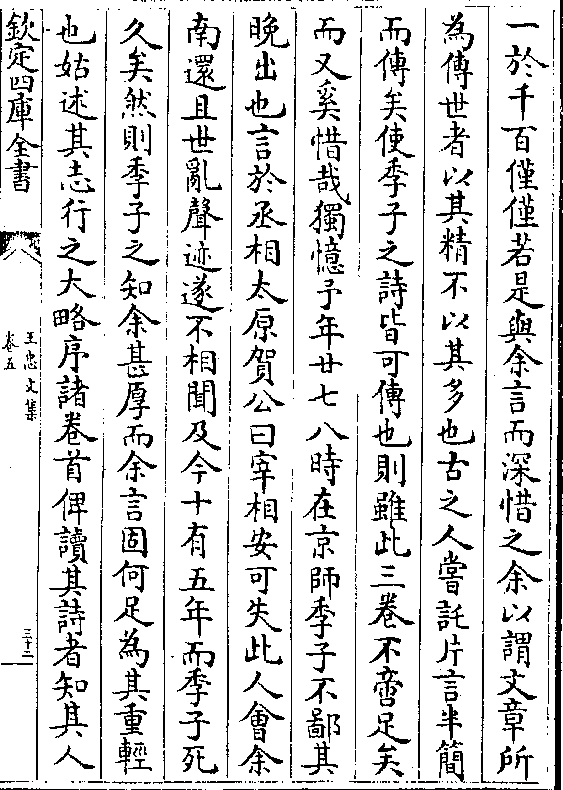 一於千百僅僅若是與余言而深惜之余以謂文章所
為傳世者以其精不以其多也古之人嘗託片言半簡
而傳矣使季子之詩皆可傳也則雖此三卷不啻足矣
而又奚惜哉獨憶予年廿七八時在京師季子不鄙其
晚出也言於丞相太原賀公曰宰相安可失此人會余
南還且世亂聲迹遂不相聞及今十有五年而季子死
久矣然則季子之知余甚厚而余言固何足為其重輕
也姑述其志行之大略序諸卷首俾讀其詩者知其人
欽定四庫全書
王忠文集
卷五
三十二